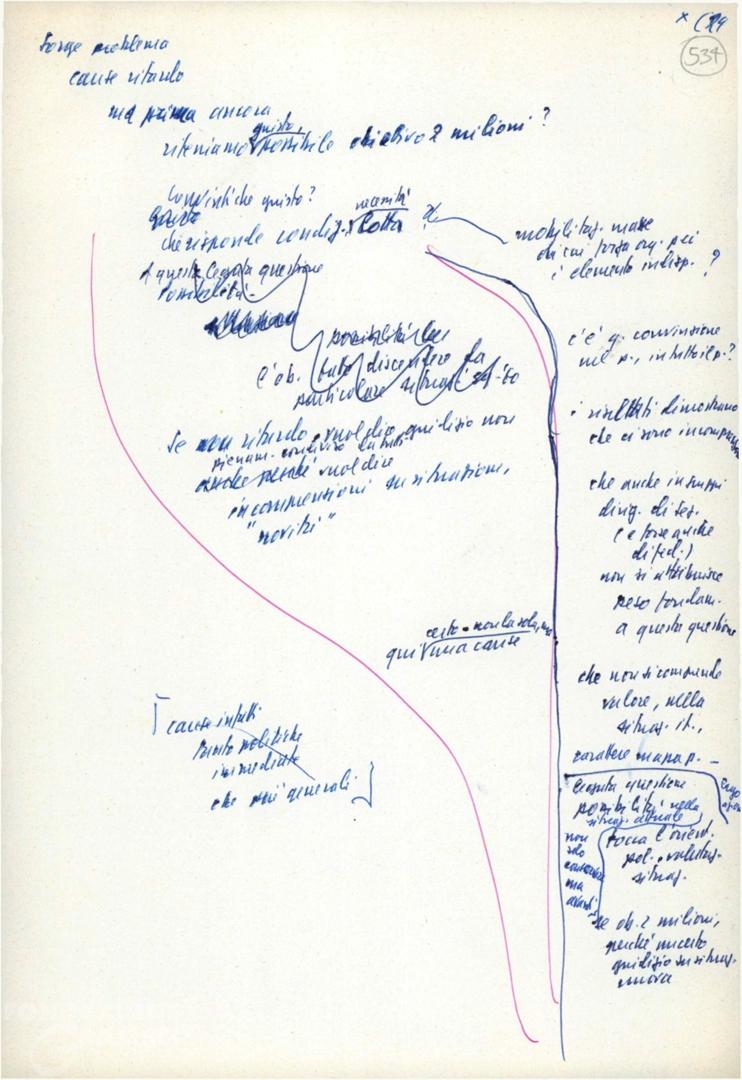 534
Sorge problema
cause ritardo
ma prima ancora
giusto,
riteniamo possibile obiettivo 2 milioni?
Convinti che giusto?
necessità
che risponde condiz. lotta
A questa legata questione
possibilità.
possibilità
l'ob. fatto discendere da
particolare situaz.
Se non ritardo vuol dire giudizio non
pienam. condiviso da tutti
anche perché vuol dire
incomprensioni su situazione,
"novità"
certo - non la sola, ma
qui una causa
[cause infatti
tanto politiche
immediate
che più generali]
mobilitaz. masse
di cui forza org. pci
è elemento indisp. ?
c'è q. convinzione
nel p., in tutto il p.?
i risultati dimostrano
che ci sono
che anche in gruppi
dirig. di sez.
(e forse anche
di fed.)
non si attribuisce
peso fondam.
a questa questione
che non si comprende
valore, nella
situaz. it.,
carattere massa p. -
legata questione
possibilità nella
situaz. attuale
non
solo
ma
avanti
tocca l'orient.
pol. valutaz.
situaz.
se ob. 2 milioni,
perché
giudizio su situaz.
nuova